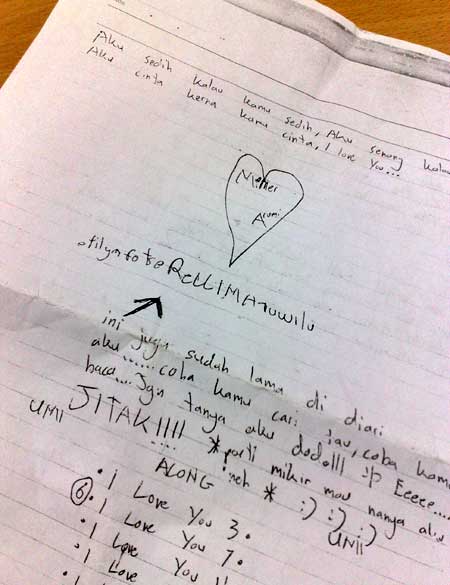 Aku sedih kalau kamu sedih, Aku senang kalau
Aku cinta kerna kamu cinta, I love You...
Arumi
ini juga sudah lama di diari
aku...... coba kamu cari tau, coba kamu
baca... Jgn tanya aku dodolll :p Eeeee....
JITAK!!!! *pasti mikir mau nanya aku
UMI
neh * :) :) :)
ALONG
UNII
• I Love You 3.
6 • I Love You 7.
• I Love You
• I Love